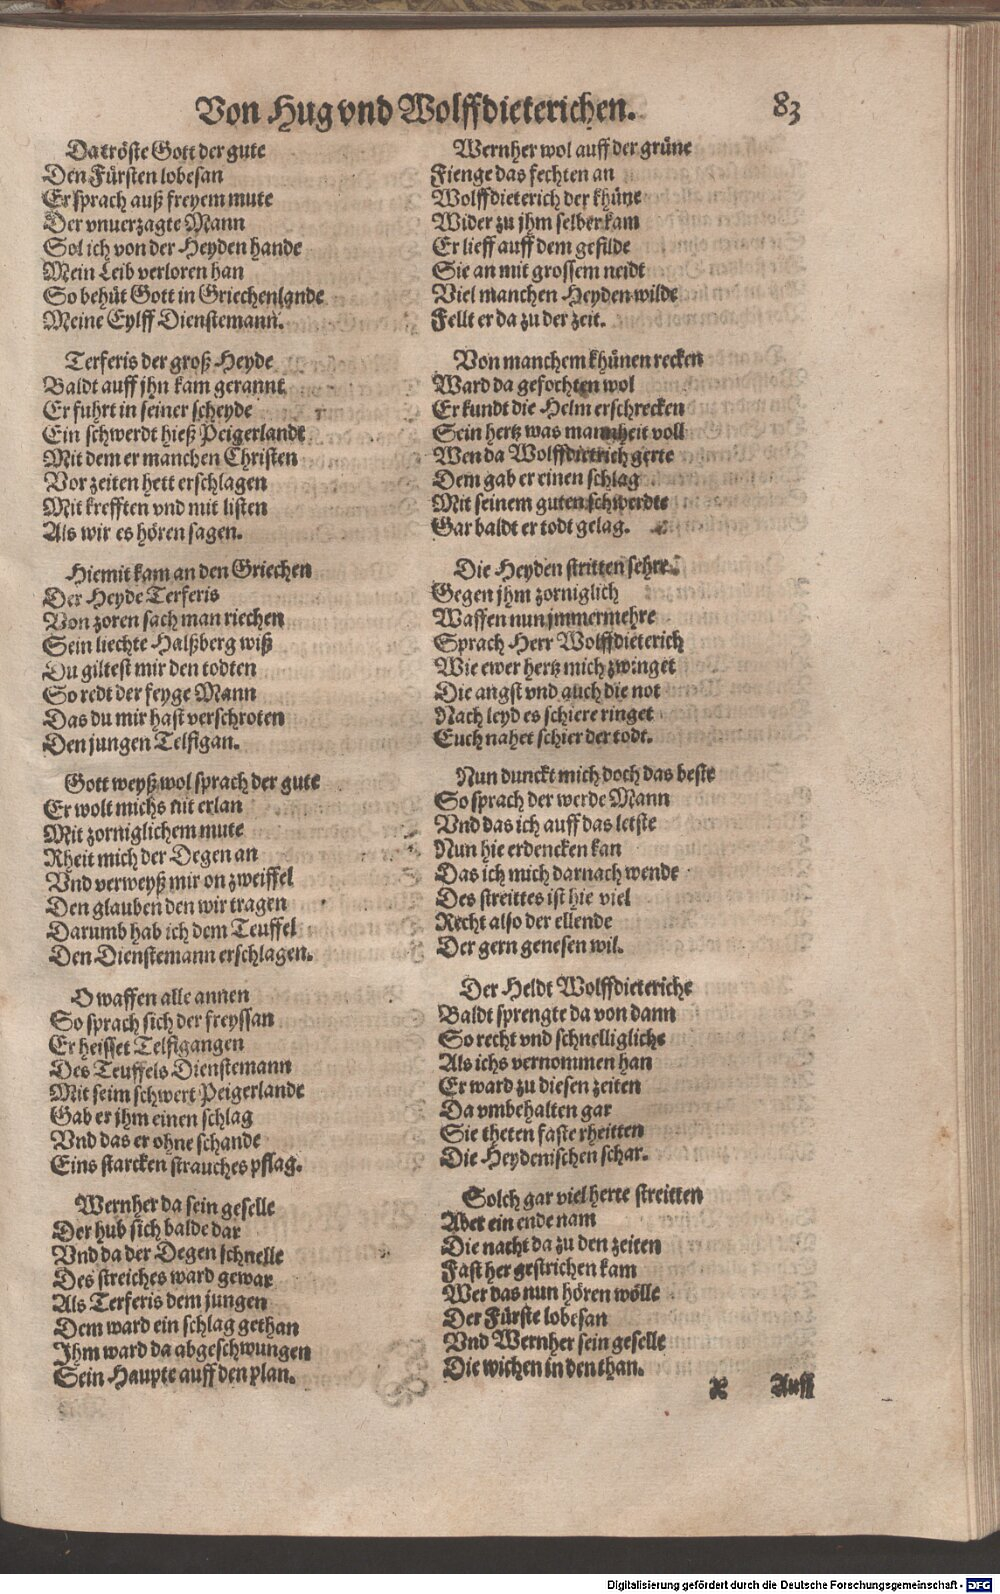 Von Hug vnd Wolffdieterichen.
83
Da tröste Gott der gute
Den Fürsten lobesan
Er sprach auß freyem mute
Der vnuerzagte Mann
Sol ich von der Heyden hande
Mein Leib verloren han
So behüt Gott in Griechenlande
Meine Eylff Dienstemann.
Terferis der groß Heyde
Baldt auff jhn kam gerannt
Er fuhrt in seiner scheyde
Ein schwerdt hieß Peigerlandt
Mit dem er manchen Christen
Vor zeiten hett erschlagen
Mit krefften vnd mit listen
Als wir es hören sagen.
Hiemit kam an den Griechen
Der Heyde Terferis
Von zoren sach man riechen
Sein liechte Halßberg wiß
Du giltest mir den todten
So redt der feyge Mann
Das du mir hast verschroten
Den jungen Telfigan.
Gott weyß wol sprach der gute
Er wolt michs nit erlan
Mit zorniglichem mute
Rheit mich der Degen an
Vnd verweyß mir on zweiffel
Den glauben den wir tragen
Darumb hab ich dem Teuffel
Den Dienstemann erschlagen.
O waffen alle annen
So sprach sich der freyssan
Er heisset Telfigangen
Des Teuffels Dienstemann
Mit seim schwert Peigerlandt
Gab er jhm einen schlag
Vnd das er ohne schande
Eins starcken strauches pflag.
Wernher da sein geselle
Der hub sich balde dar
Vnd da der Degen schnelle
Des streiches ward gewar
Als Terferis dem jungen
Dem ward ein schlag gethan
Ihm ward da abgeschwungen
Sein Haupte auff den plan.
Wernher wol auff der grüne
Fienge das fechten an
Wolffdieterich der khüne
Wider zu jhm selber kam
Er lieff auff dem gefilde
Sie an mit grossem neidt
Viel manchen Heyden wilde
Fellt er da zu der zeit.
Von manchem khünen recken
Ward da gefochten wol
Er kundt die Helm erschrecken
Sein hertz was mannheit voll
Wen da Wolffdietrich gerte
Dem gab er einen schlag
Mit seinem guten schwerdte
Gar baldt er todt gelag.
Die Heyden stritten sehre
Gegen jhm zorniglich
Waffen nun jmmermehre
Sprach Herr Wolffdieterich
Wie ewer hertz mich zwinget
Die angst vnd auch die not
Nach leyd es schiere ringet
Euch nahet schier der todt.
Nun dunckt mich doch das beste
So sprach der werde Mann
Vnd das ich auff das letste
Nun hie erdencken kan
Das ich mich darnach wende
Des streittes ist hie viel
Recht also der ellende
Der gern genesen wil.
Der Heldt Wolffdieteriche
Baldt sprengte da von dann
So recht vnd schnelligliche
Als ichs vernommen han
Er ward zu diesen zeiten
Da vmbehalten gar
Sie theten faste rheitten
Die Heydenischen schar.
Solch gar viel herte streitten
Aber ein ende nam
Die nacht da zu den zeiten
Fast her gestrichen kam
Wer das nun hören wölle
Der Fürste lobesan
Vnd Wernher sein geselle
Die wichen in den than.
X Auff
Digitalisierung gefördert durch die Deutsche Forschungsgemeinschaft - DFG